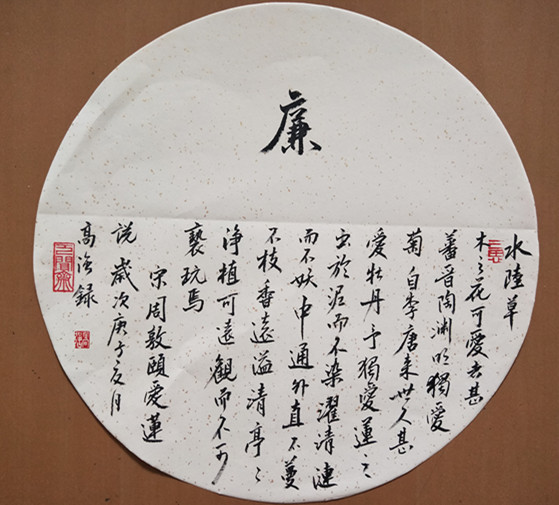 廉
水陸草
木之花可愛者甚
蕃晉陶渊明獨愛
菊自李唐来世人甚
愛牡丹予獨愛蓮之
出於泥而不染濯清漣
而不妖中通外直不蔓
不枝香遠溢清亭々
淨植可遠觀而不可
褻玩焉
宋周敦頤愛蓮
説歲次庚子夏月
高録